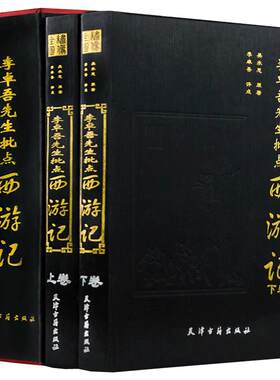 李卓吾先生批点
西游记
李卓吾先生批点
西游记
上卷
天津古籍出版社
李卓吾先生批点
西游记
下卷
天津古籍出版社
吴承恩 原著
李卓吾 评点
李卓吾先生批点
西游记
下
天津古籍出版社